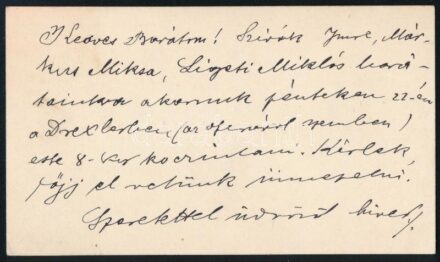 Kedves Barátom! Szirák Imre, Már-
kus Miksa, Ligeti Miklós bará-
tainkra akarunk pénteken 22-én
a Drexlerben (az operával szemben)
este 8-kor koczintani. Kérlek,
jőjj el velünk ünnepelni.
Szeretettel üdvözöl híved